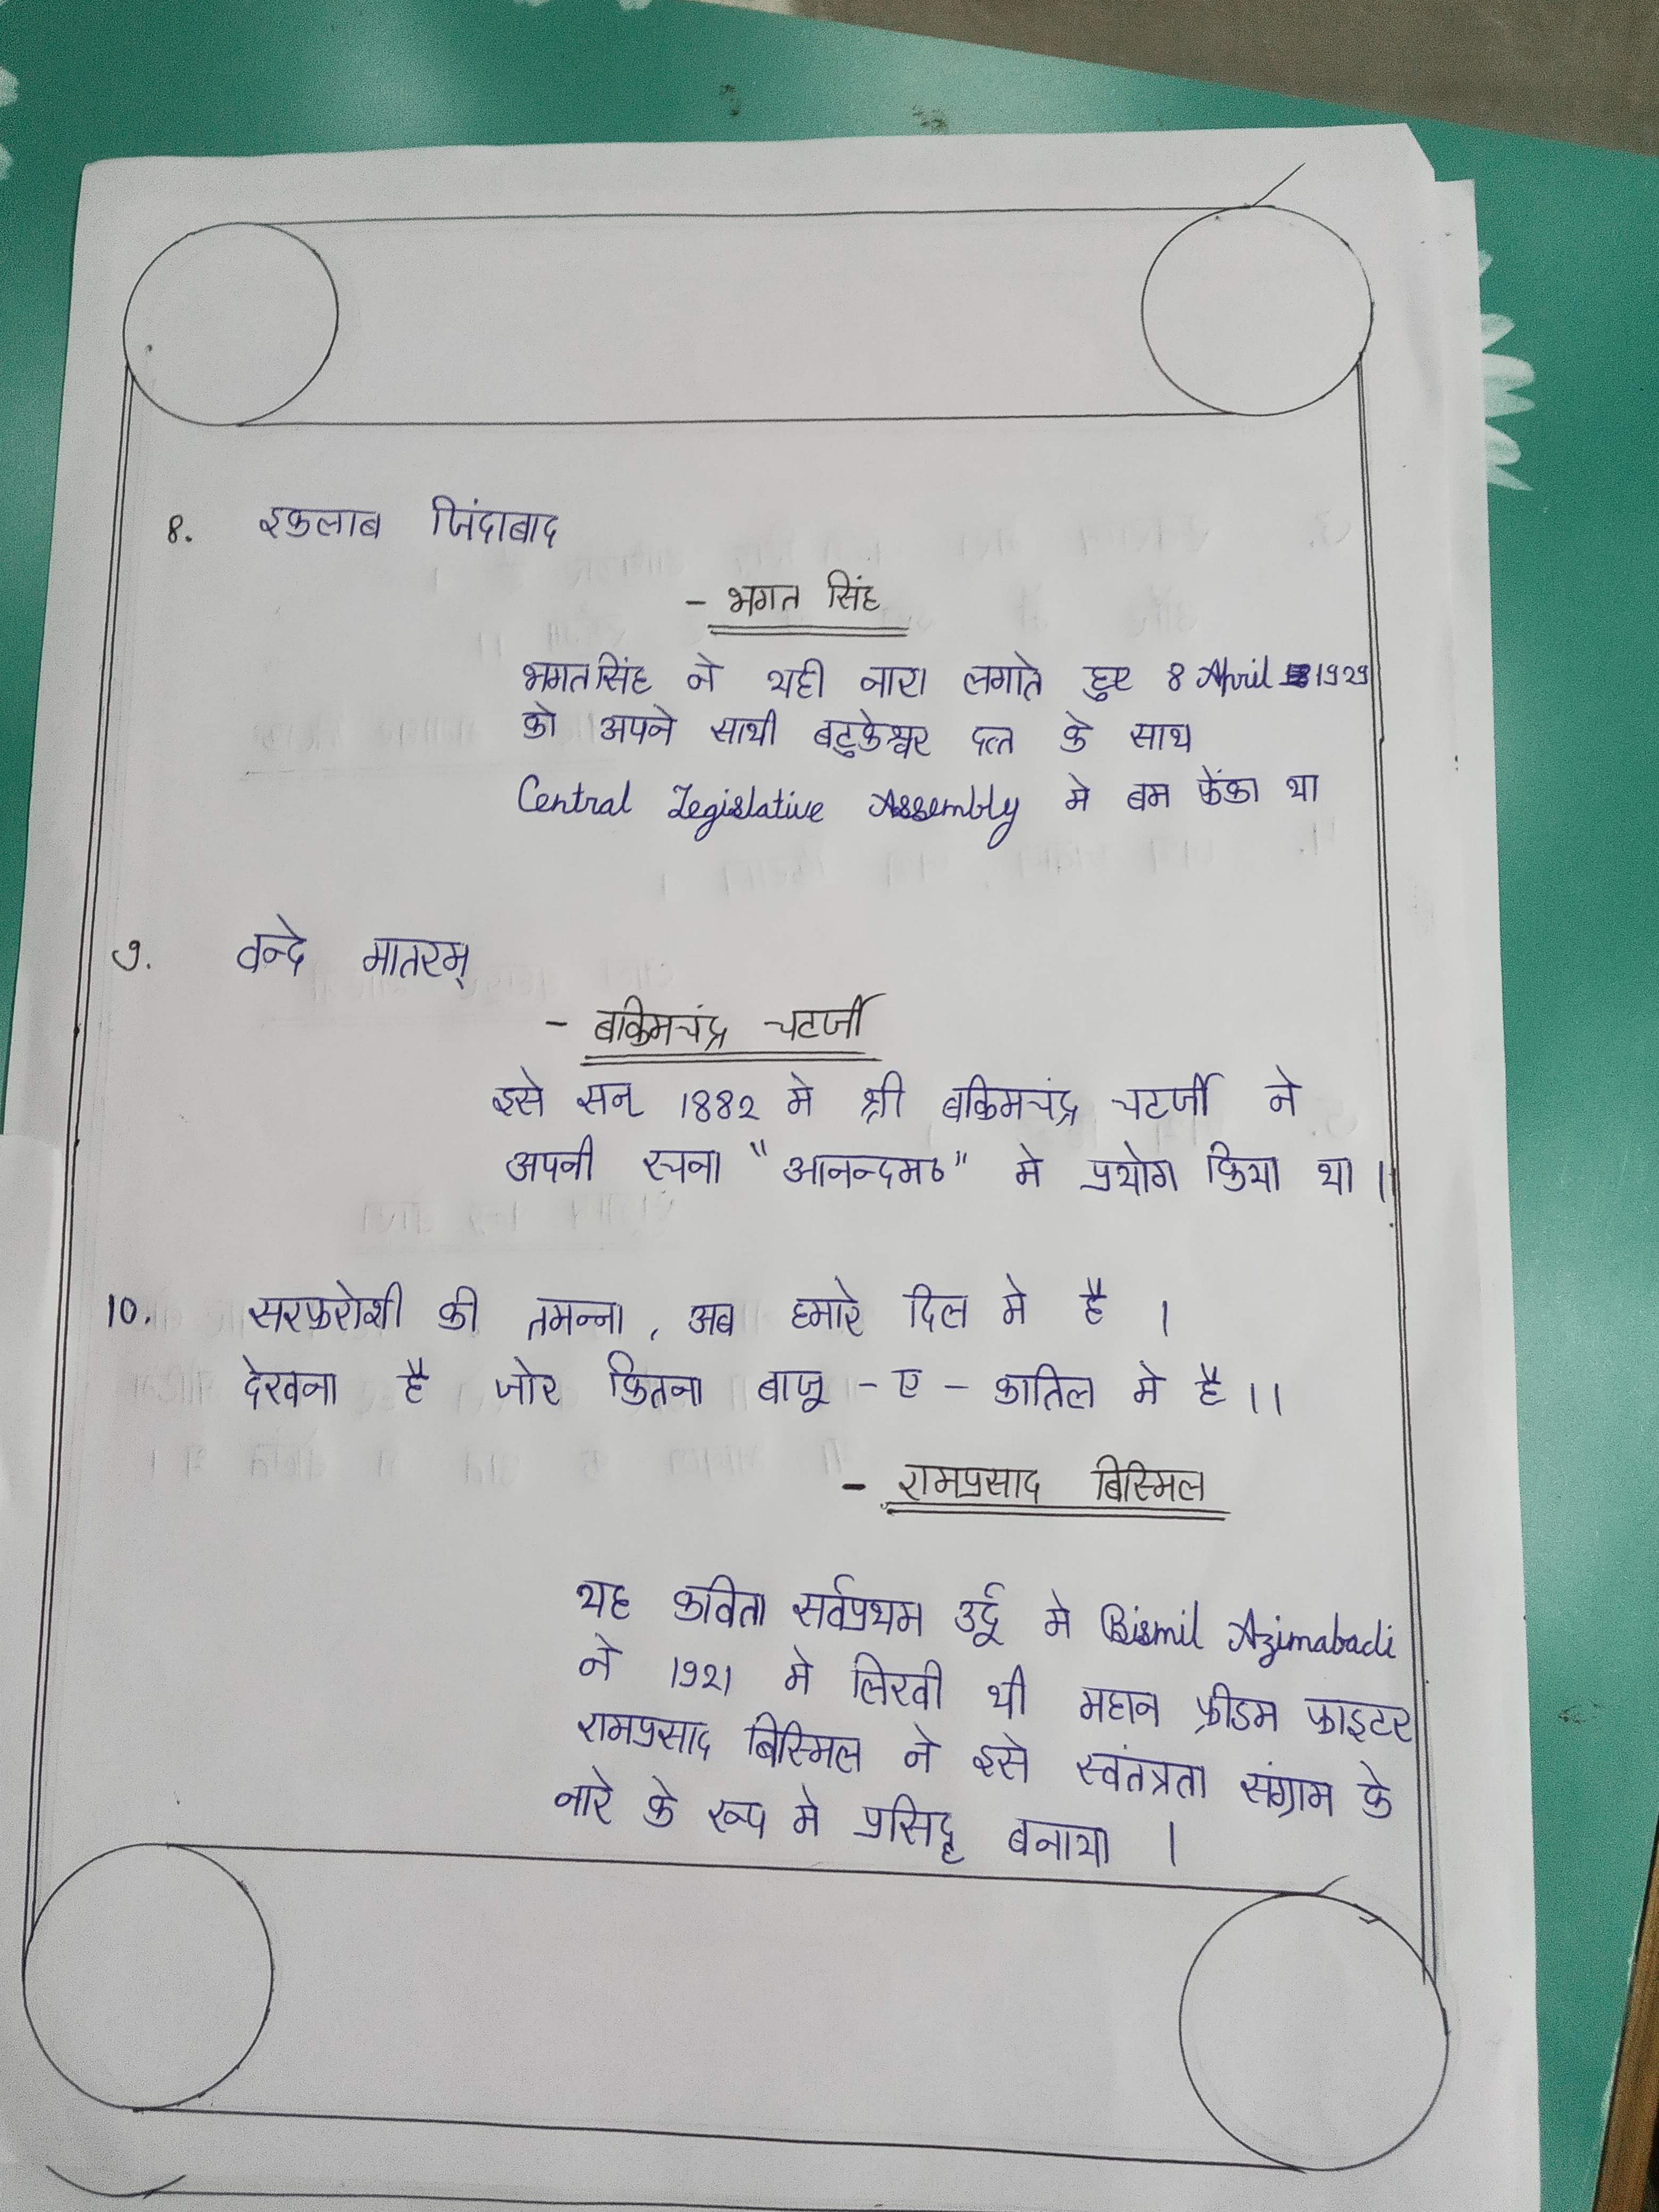 8. इकलाब जिंदाबाद
- भगत सिंह
भगत सिंह ने यही नारा लगाते हुए 8 April 1929
को अपने साथी बटुकेश्वर दत्त के साथ
Central Legislative Assembly मे बम फेंका था
9. वन्दे मातरम्
- बकिमचंद्र चटर्जी
इसे सन् 1882 मे श्री बकिमचंद्र चटर्जी ने
अपनी रचना "आनन्दमठ" मे प्रयोग किया था |
10. सरफरोशी की तमन्ना, अब हमारे दिल मे है |
देखना है जोर कितना बाजू - ए - कातिल मे है ||
- रामप्रसाद बिस्मिल
यह कविता सर्वप्रथम उर्दू मे Bismil Azimabadi
ने 1921 मे लिखी थी महान फ्रीडम फाइटर
रामप्रसाद बिस्मिल ने इसे स्वंतत्रता संग्राम के
नारे के रूप मे प्रसिद्ध बनाया |